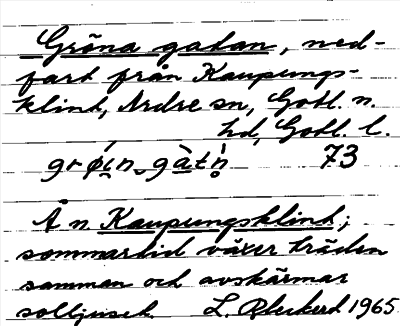 Gröna gatan, ned-
fart från Kaupungs-
klint, Ardre sn, Gotl. n.
hd, Gotl. l.
grǿi̯n-gàtǹ̥ 73
Å n. Kaupungsklint;
sommartid växer träden
samman och avskärmar
solljuset. L. 1965